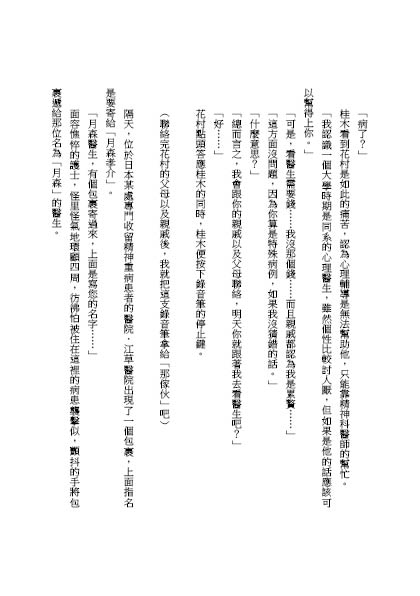 「病了？」
桂木看到花村是如此的痛苦，認為心理輔導是無法幫助他，只能靠精神科醫師的幫忙。
「我認識一個大學時期是同系的心理醫生，雖然個性比較討人厭，但如果是他的話應該可
以幫得上你。」
「可是，看醫生需要錢……我沒那個錢……而且親戚都認為我是累贅……」
「這方面沒問題，因為你算是特殊病例，如果我沒猜錯的話。」
「什麼意思？」
「總而言之，我會跟你的親戚以及父母聯絡，明天你就跟著我去看醫生吧？」
「好……」
花村點頭答應桂木的同時，桂木便按下錄音筆的停止鍵。
（聯絡完花村的父母以及親戚後，我就把這支錄音筆拿給「那傢伙」吧）
隔天，位於日本某處專門收留精神重病患者的醫院．江草醫院出現了一個包裹，上面指名
是要寄給「月森孝介」。
「月森醫生，有個包裹寄過來，上面是寫您的名字……」
面容憔悴的護士，怪里怪氣地環顧四周，彷彿怕被住在這裡的病患襲擊似，顫抖的手將包
裹遞給那位名為「月森」的醫生。